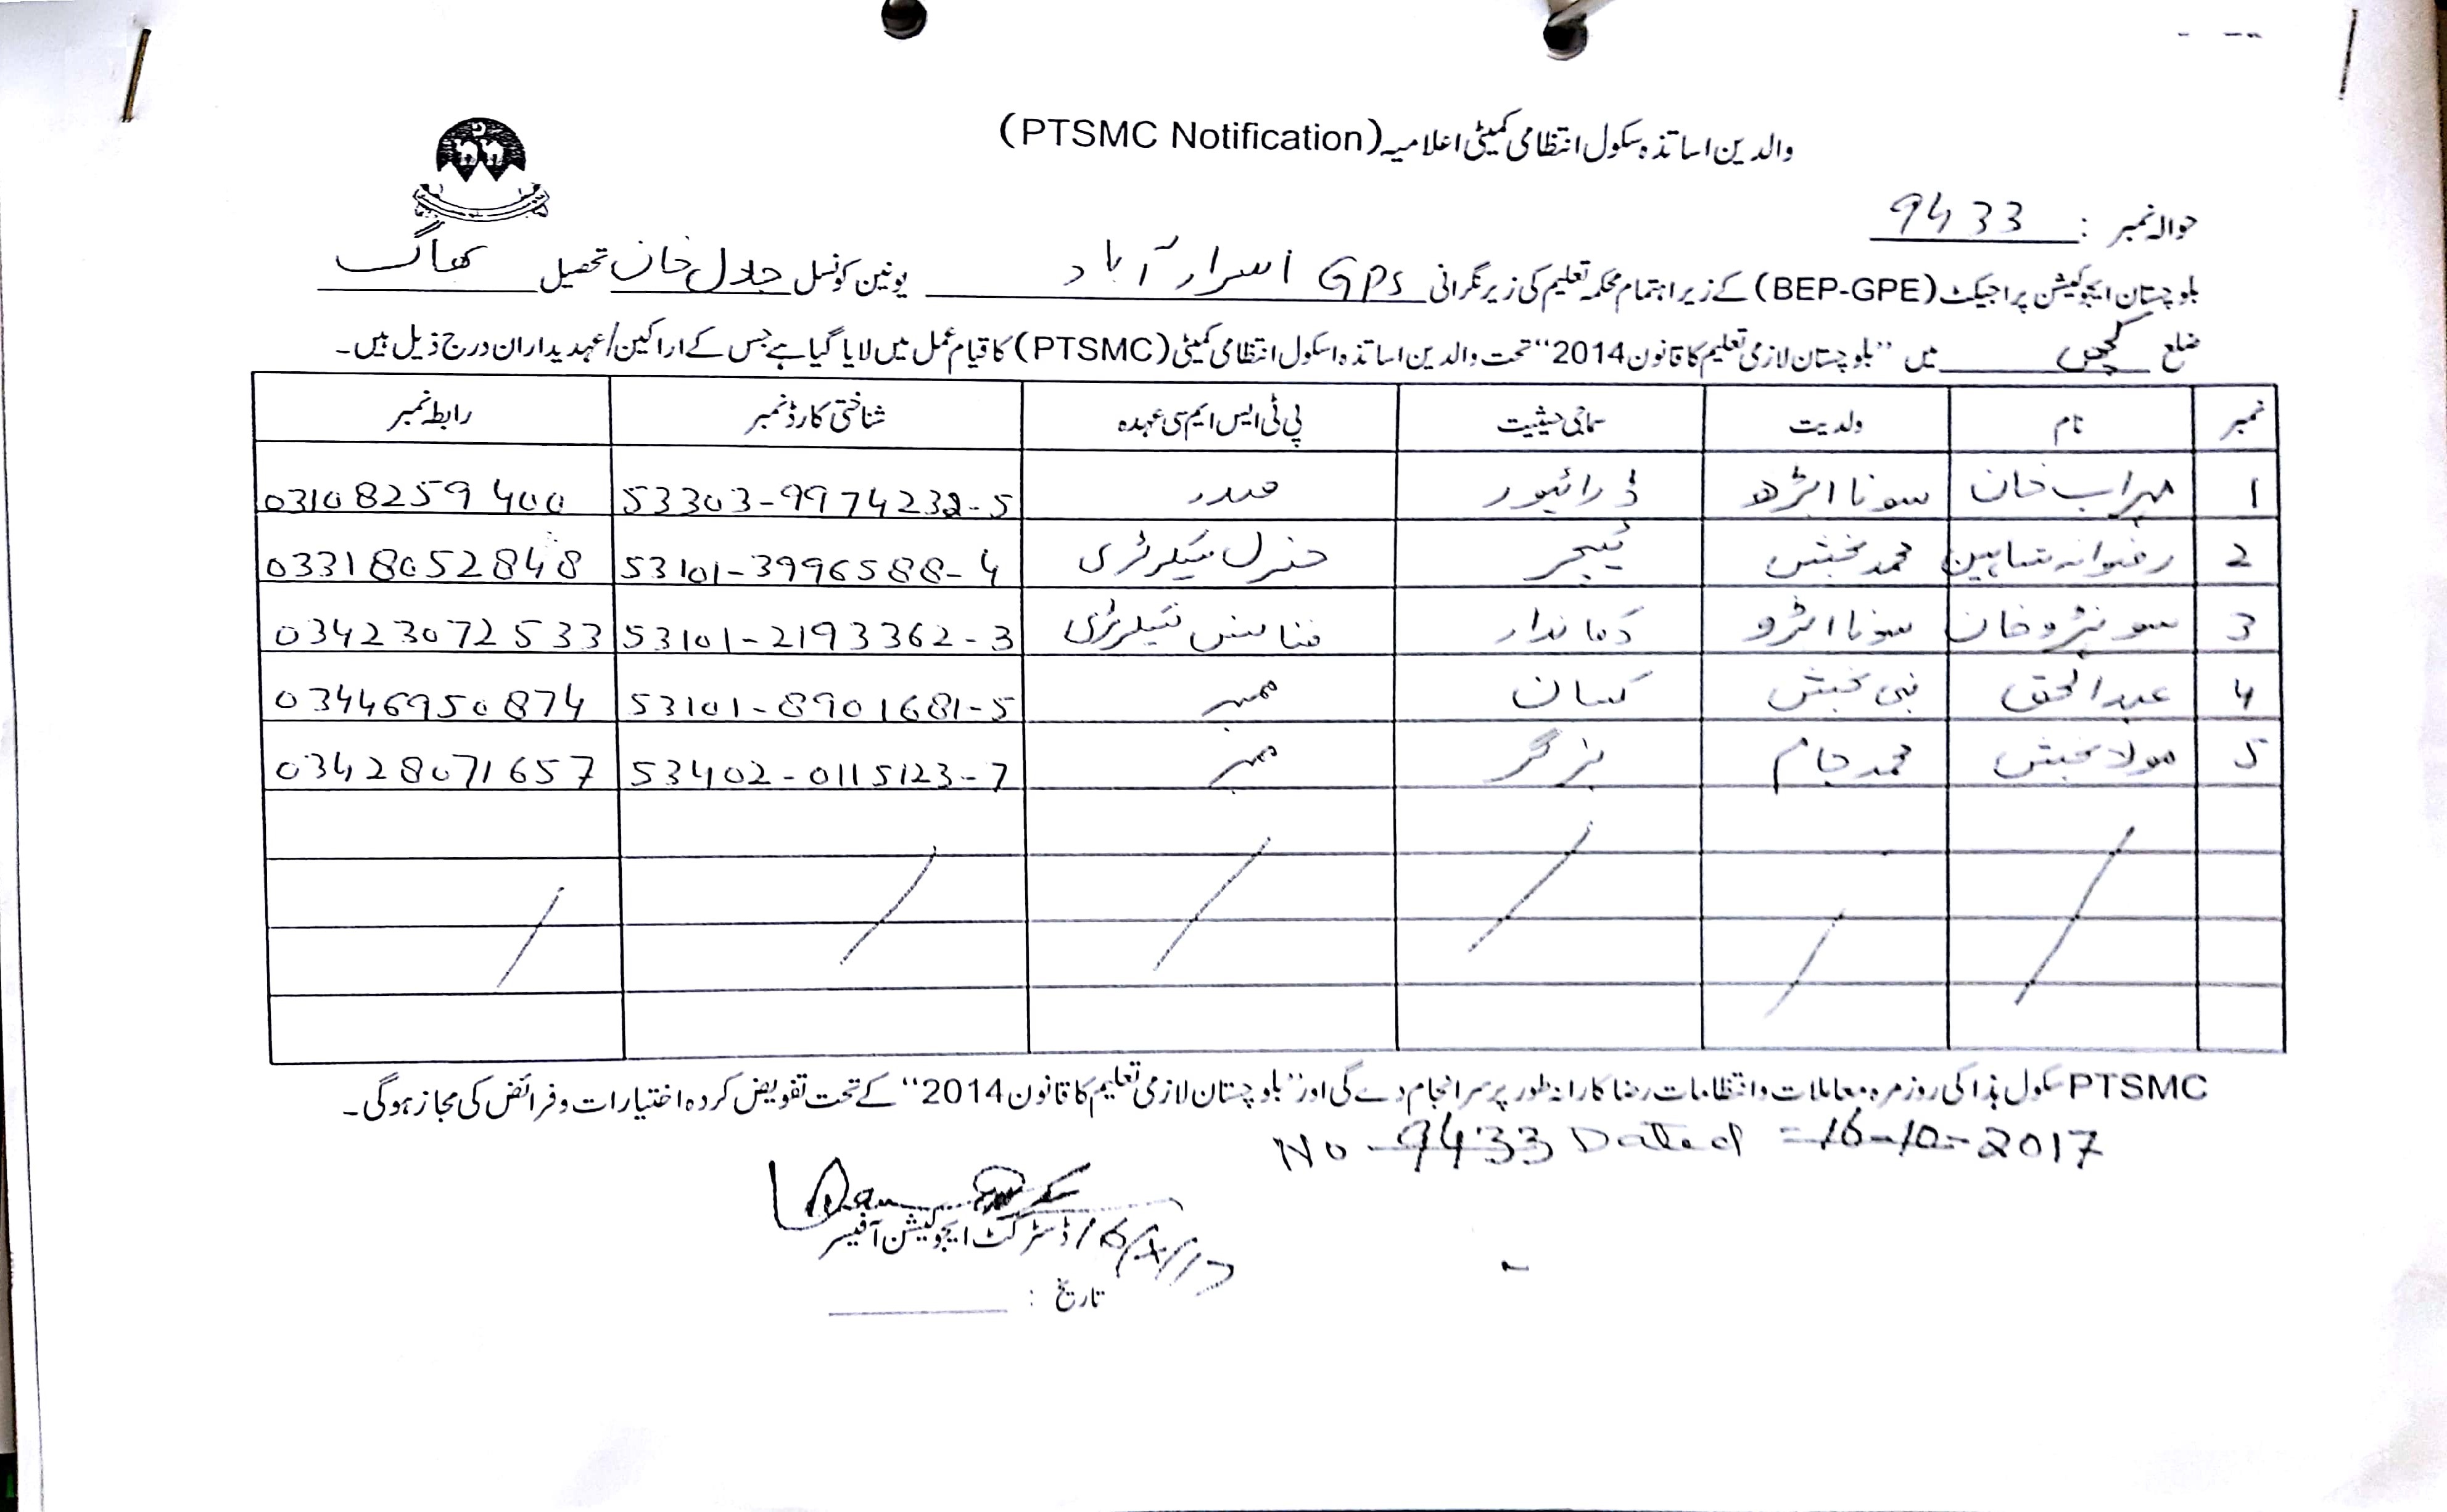 والدین اساتذہ سکول انتظامی کمیٹی اعلامیہ (PTSMC Notification)
حوالہ نمبر : 9433
بلوچستان ایجوکیشن پراجیکٹ (BEP-GPE) کے زیر اہتمام محکمہ تعلیم کی زیر نگرانی GPS اسرار آباد یونین کونسل جلال خان تحصیل بھاگ
ضلع کچھی میں "بلوچستان لازمی تعلیم کا قانون 2014" تحت والدین اساتذہ اسکول انتظامی کمیٹی (PTSMC) کا قیام عمل میں لایا گیا ہے جس کے اراکین/عہدیداران درج ذیل ہیں۔
نمبر نام ولدیت سماجی حیثیت پی ٹی ایس ایم سی عہدہ شناختی کارڈ نمبر رابطہ نمبر
1 مہراب خان سونا ابڑھ ڈرائیور صدر 53303-9974232-5 03108259400
2 رضوانہ شاہین محمد بخش ٹیچر جنرل سیکرٹری 53101-3996588-4 03318052848
3 خان سونا ابڑو دکاندار فنانس سیکرٹری 53101-2193362-3 03423072533
4 عبدالحق نبی بخش کسان ممبر 53101-8901681-5 03446950874
5 مولا بخش محمد جام بزگر ممبر 53402-0115123-7 03428071657
PTSMC سکول ہذا کی روزمرہ معاملات و انتظامات رضا کارانہ طور پر سرانجام دے گی اور "بلوچستان لازمی تعلیم کا قانون 2014" کے تحت تفویض کردہ اختیارات و فرائض کی مجاز ہوگی۔
No - 9433 Dated = 16-10-2017
ڈسٹرکٹ ایجوکیشن آفیسر
تاریخ :